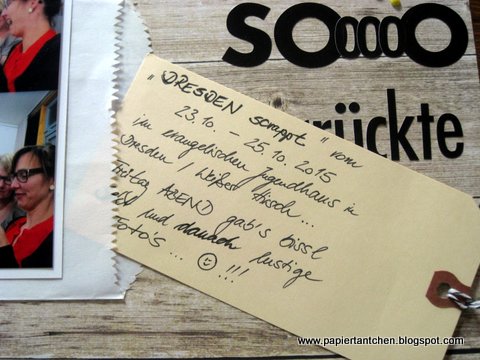 SOooooO
rückte
"DRESDEN scrappt" vom
23.10. – 25.10.2015
im evangelischen Jugendhaus in
Dresden / Weißer Hirsch...
Freitag ABEND gab's bissl
und danach lustige
Foto's... ☺ !!!
www.papiertantchen.blogspot.com